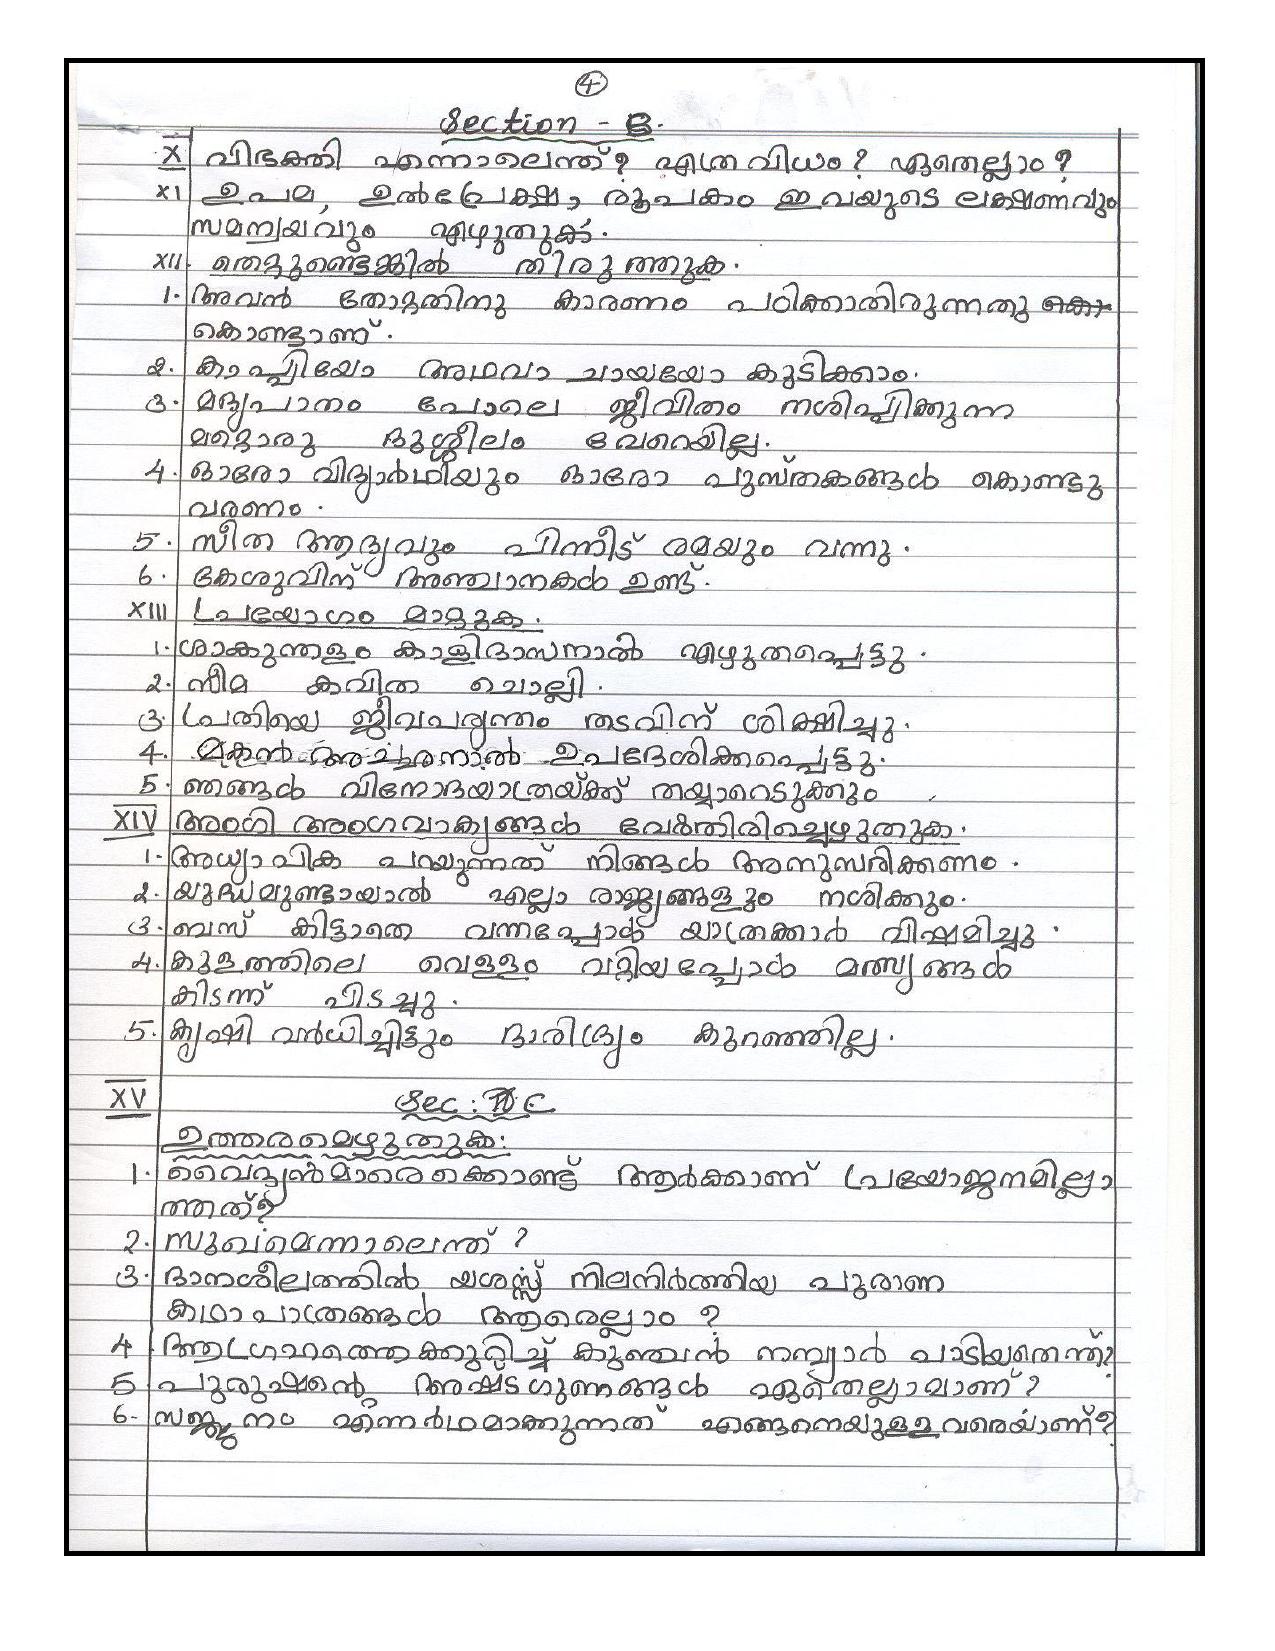 4
Section - B.
X വിഭക്തി എന്നാലെന്ത്? എത്രവിധം? ഏതെല്ലാം?
XI ഉപമ, ഉൽപ്രേക്ഷ, രൂപകം ഇവയുടെ ലക്ഷണവും
സമന്വയവും എഴുതുക.
XII. തെറ്റുണ്ടെങ്കിൽ തിരുത്തുക.
1. അവൻ തോറ്റതിനു കാരണം പഠിക്കാതിരുന്നതു കൊ
കൊണ്ടാണ്.
2. കാപ്പിയോ അഥവാ ചായയോ കുടിക്കാം.
3. മദ്യപാനം പോലെ ജീവിതം നശിപ്പിക്കുന്ന
മറ്റൊരു ദുശ്ശീലം വേറെയില്ല.
4. ഓരോ വിദ്യാർഥിയും ഓരോ പുസ്തകങ്ങൾ കൊണ്ടു
വരണം.
5. സീത ആദ്യവും പിന്നീട് രമയും വന്നു.
6. കേശുവിന് അഞ്ചാനകൾ ഉണ്ട്.
XIII പ്രയോഗം മാറ്റുക.
1. ശാകുന്തളം കാളിദാസനാൽ എഴുതപ്പെട്ടു.
2. സീമ കവിത ചൊല്ലി.
3. പ്രതിയെ ജീവപര്യന്തം തടവിന് ശിക്ഷിച്ചു.
4. മകൻ അച്ഛനാൽ ഉപദേശിക്കപ്പെട്ടു.
5. ഞങ്ങൾ വിനോദയാത്രയ്ക്ക് തയ്യാറെടുക്കും
XIV അംഗി അംഗവാക്യങ്ങൾ വേർതിരിച്ചെഴുതുക.
1. അധ്യാപിക പറയുന്നത് നിങ്ങൾ അനുസരിക്കണം.
2. യുദ്ധമുണ്ടായാൽ എല്ലാ രാജ്യങ്ങളും നശിക്കും.
3. ബസ് കിട്ടാതെ വന്നപ്പോൾ യാത്രക്കാർ വിഷമിച്ചു.
4. കുളത്തിലെ വെള്ളം വറ്റിയപ്പോൾ മത്സ്യങ്ങൾ
കിടന്ന് പിടച്ചു.
5. കൃഷി വർധിച്ചിട്ടും ദാരിദ്ര്യം കുറഞ്ഞില്ല.
XV Sec: C
ഉത്തരമെഴുതുക:
1. വൈദ്യൻമാരെക്കൊണ്ട് ആർക്കാണ് പ്രയോജനമില്ലാ
ത്തത്?
2. സുഖമെന്നാലെന്ത്?
3. ദാനശീലത്തിൽ യശസ്സ് നിലനിർത്തിയ പുരാണ
കഥാപാത്രങ്ങൾ ആരെല്ലാം?
4 ആഗ്രഹത്തെക്കുറിച്ച് കുഞ്ചൻ നമ്പ്യാർ പാടിയതെന്ത്?
5 പുരുഷന്റെ അഷ്ടഗുണങ്ങൾ ഏതെല്ലാമാണ്?
6- സജ്ജനം എന്നർഥമാക്കുന്നത് എങ്ങനെയുള്ളവരെയാണ്?